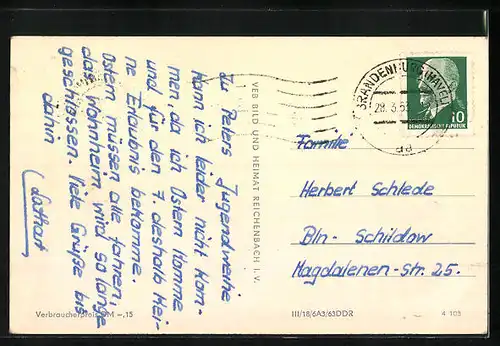 Zu Peters Jugendweihe
kann ich leider nicht kom-
men, da ich Ostern komme
und für den 7. deshalb kei-
ne Erlaubnis bekomme.
Ostern müssen alle fahren,
das Wohnheim wird so lange
geschlossen. Viele Grüße bis
dahin
Lothar
VEB BILD UND HEIMAT REICHENBACH I. V.
BRANDENBURG (HAVEL)
10
DEUTSCHE DEMOKRATISCHE REPUBLIK
Familie
Herbert Schlede
Bln- Schildow
Magdalenen-Str. 25.
Verbraucherpreis DM –,15
III/18/6A3/63DDR
A 103